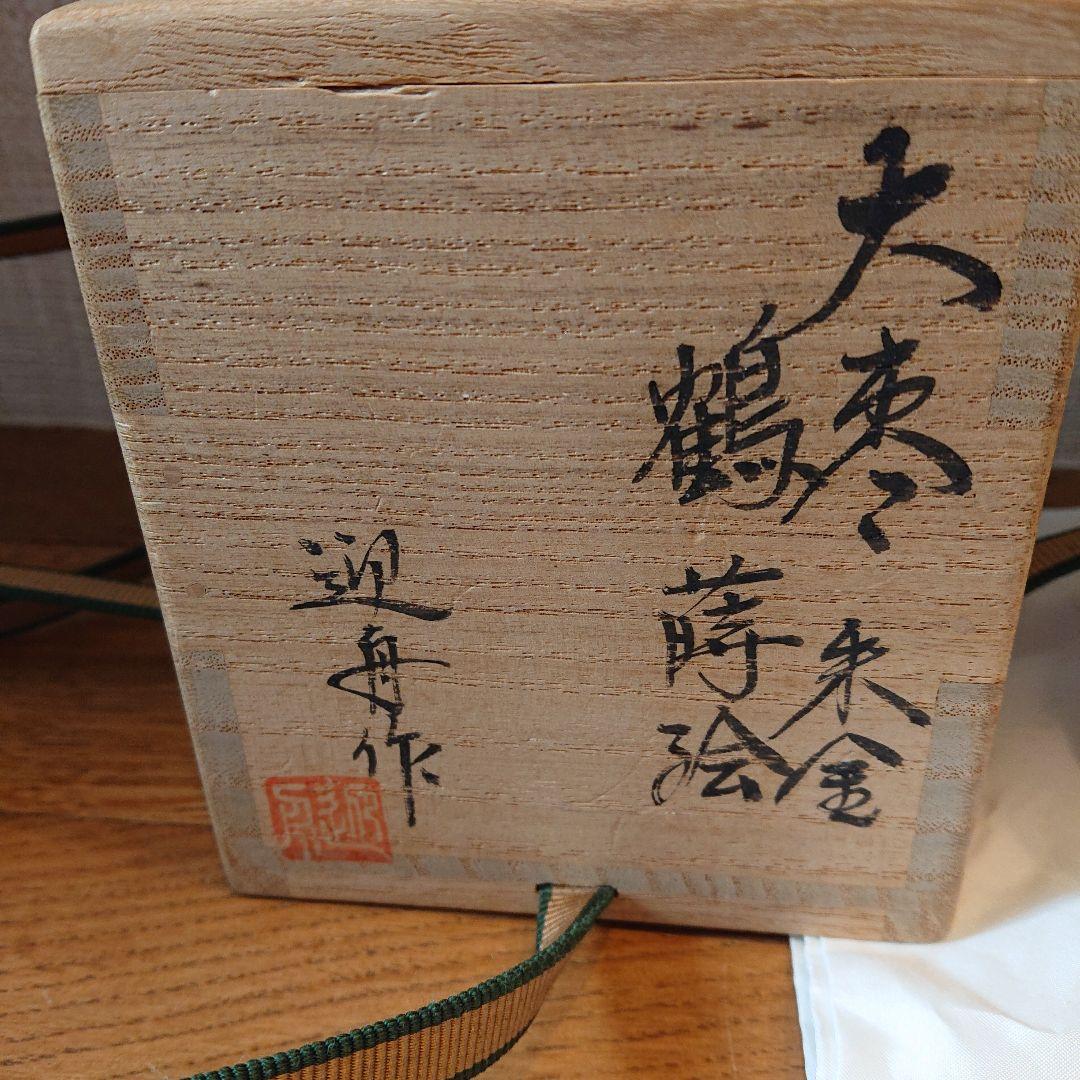 大棗 朱金
鶴 蒔絵
迎舟作